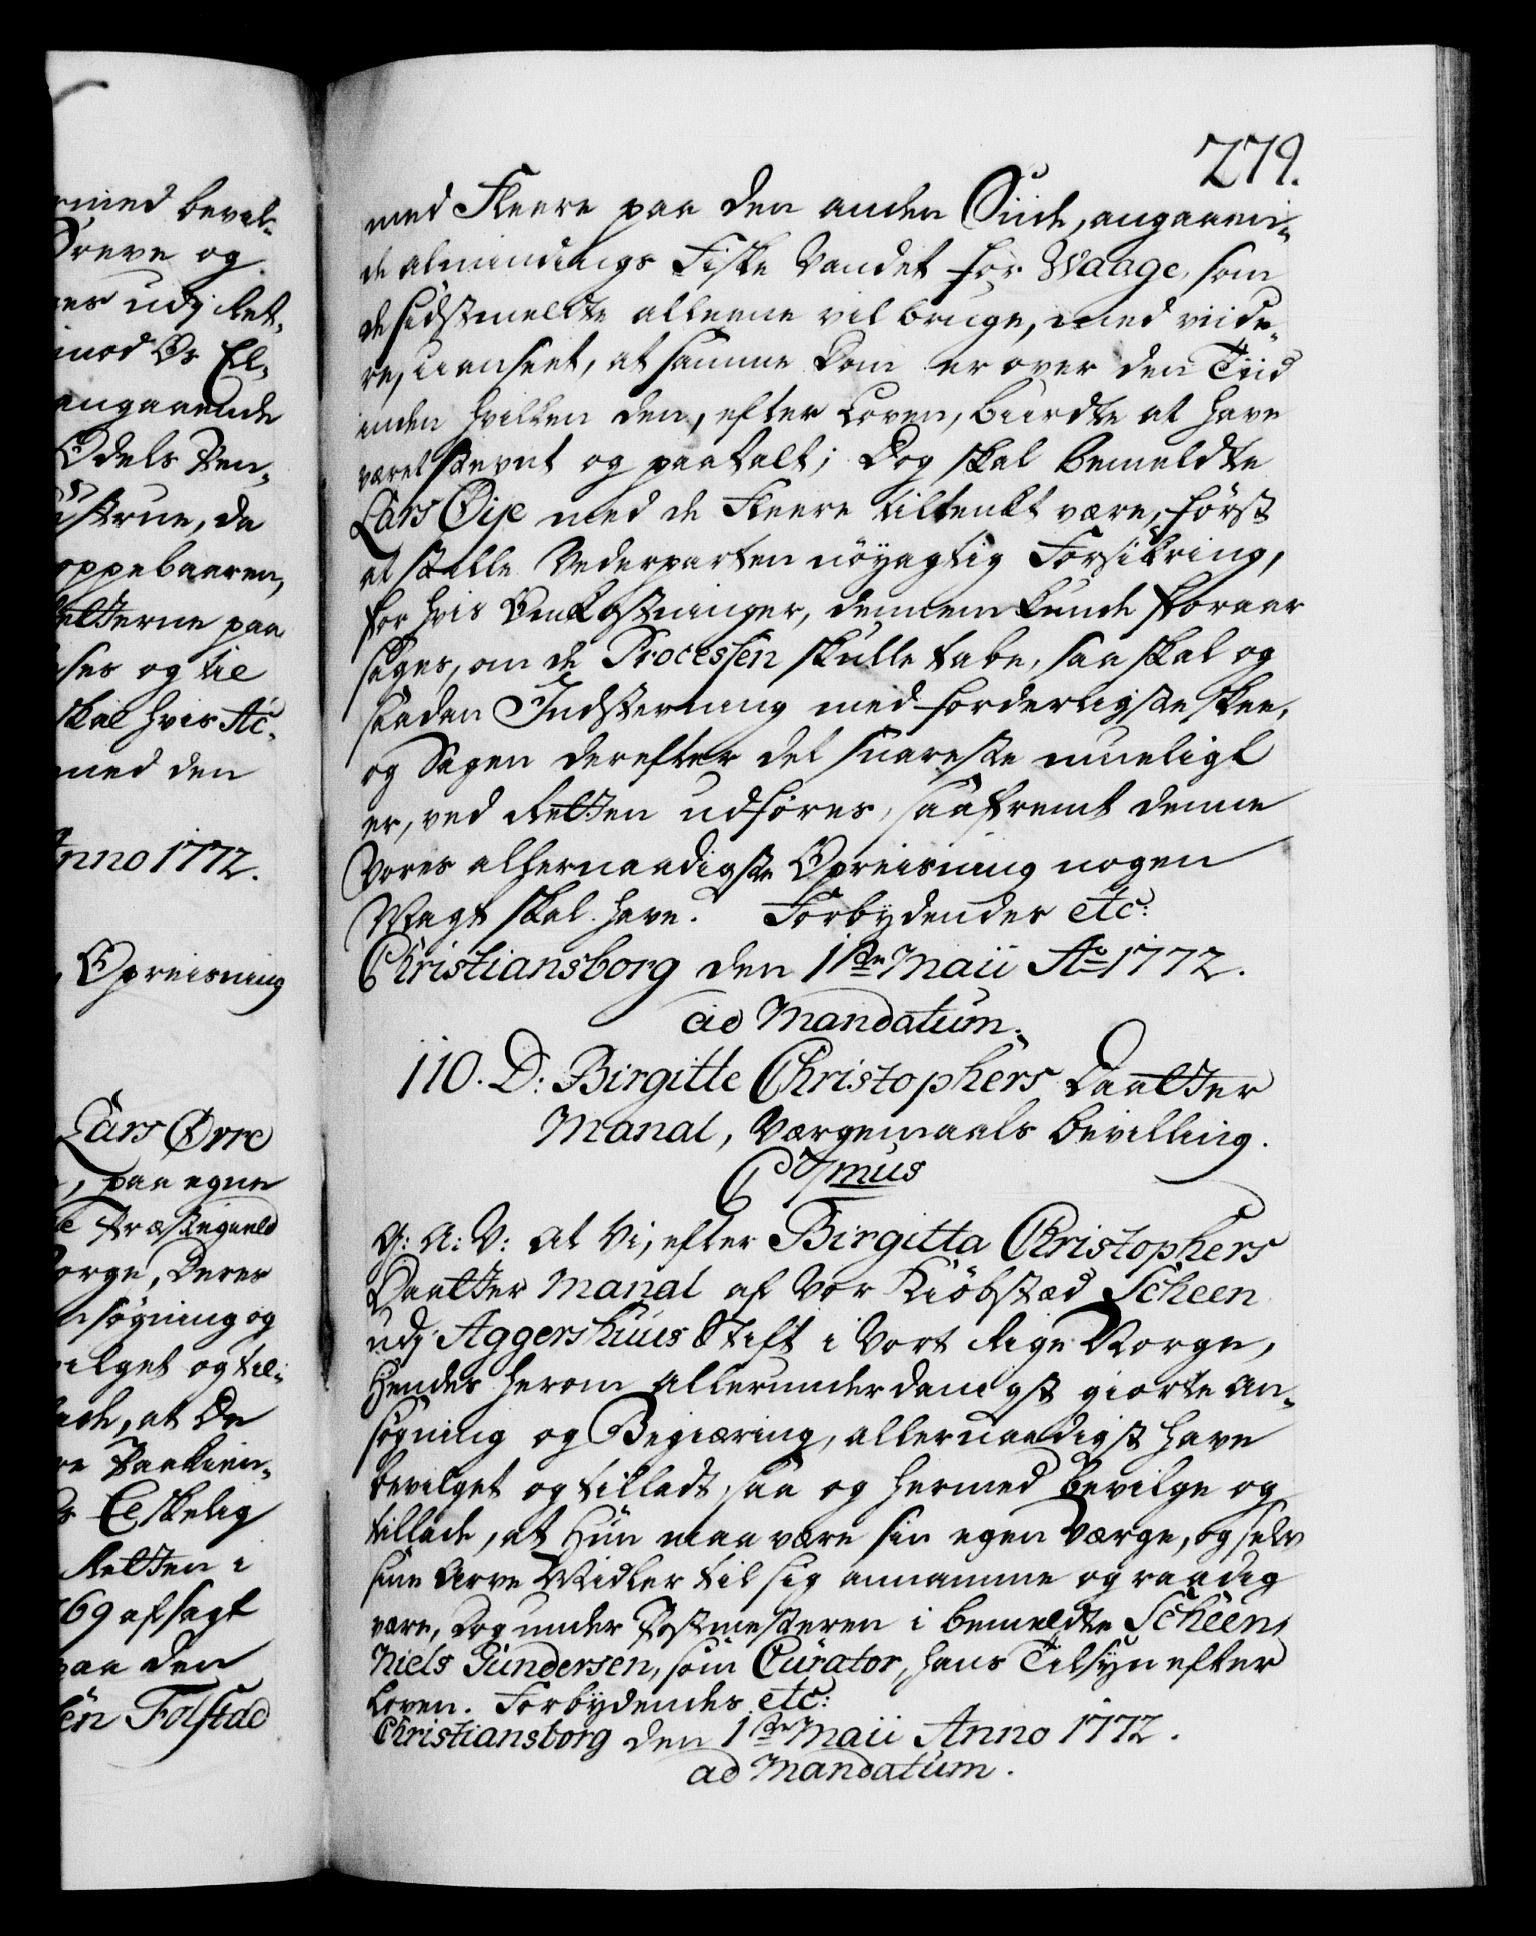 279.
med Fleere paa den anden Siide, angaaen-
de almindings Fiske Vandet for Waage, som
de sidstmeldte alleene vil bruge, med viide-
re, uanseet, at samme Dom er over den Tiid
inden hvilken den, efter Loven, burdte at have
været stevnt og paatalt; Dog skal bemeldte
Lars med de Fleere tiltenkt være, först
at stille Vederparten nöyagtig Forsikring,
for hvis Omkostninger, dennem kunde foraar
sages, om de Processen skulle tabe, saa skal og
saadan Indstevning med forderligste skee,
og Sagen derefter det snareste mueligt
er, ved Retten udföres, saafremt denne
Vores allernaadigste Opreisning nogen
Magt skal have. Forbydendes etc:
Christiansborg den 1ste Maii Ao 1772.
ad Mandatum.
110. D: Birgitte Christophers Daatter
Manal, Værgemaals bevilling.
C 7mus
G: A: V: at Vi, efter Birgitta Christophers
Daatter Manal af Vor Kiöbstæd Scheen
udj Aggershuus Stift i Vort Rige Norge,
Hendes herom allerunderdanigst giorte An-
søgning og Begiæring, allernaadigst have
bevilget og tilladt, saa og hermed bevilge og
tillade, at Hun maa være sin egen Værge, og selv
sine Arve Midler til sig annamme og raadig
være, dog under Postmesteren i bemeldte Scheen,
Niels Gundersen, som Curator, hans Tilsyn efter
Loven. Forbydendes etc:
Christiansborg den 1ste Maii Anno 1772.
ad Mandatum.